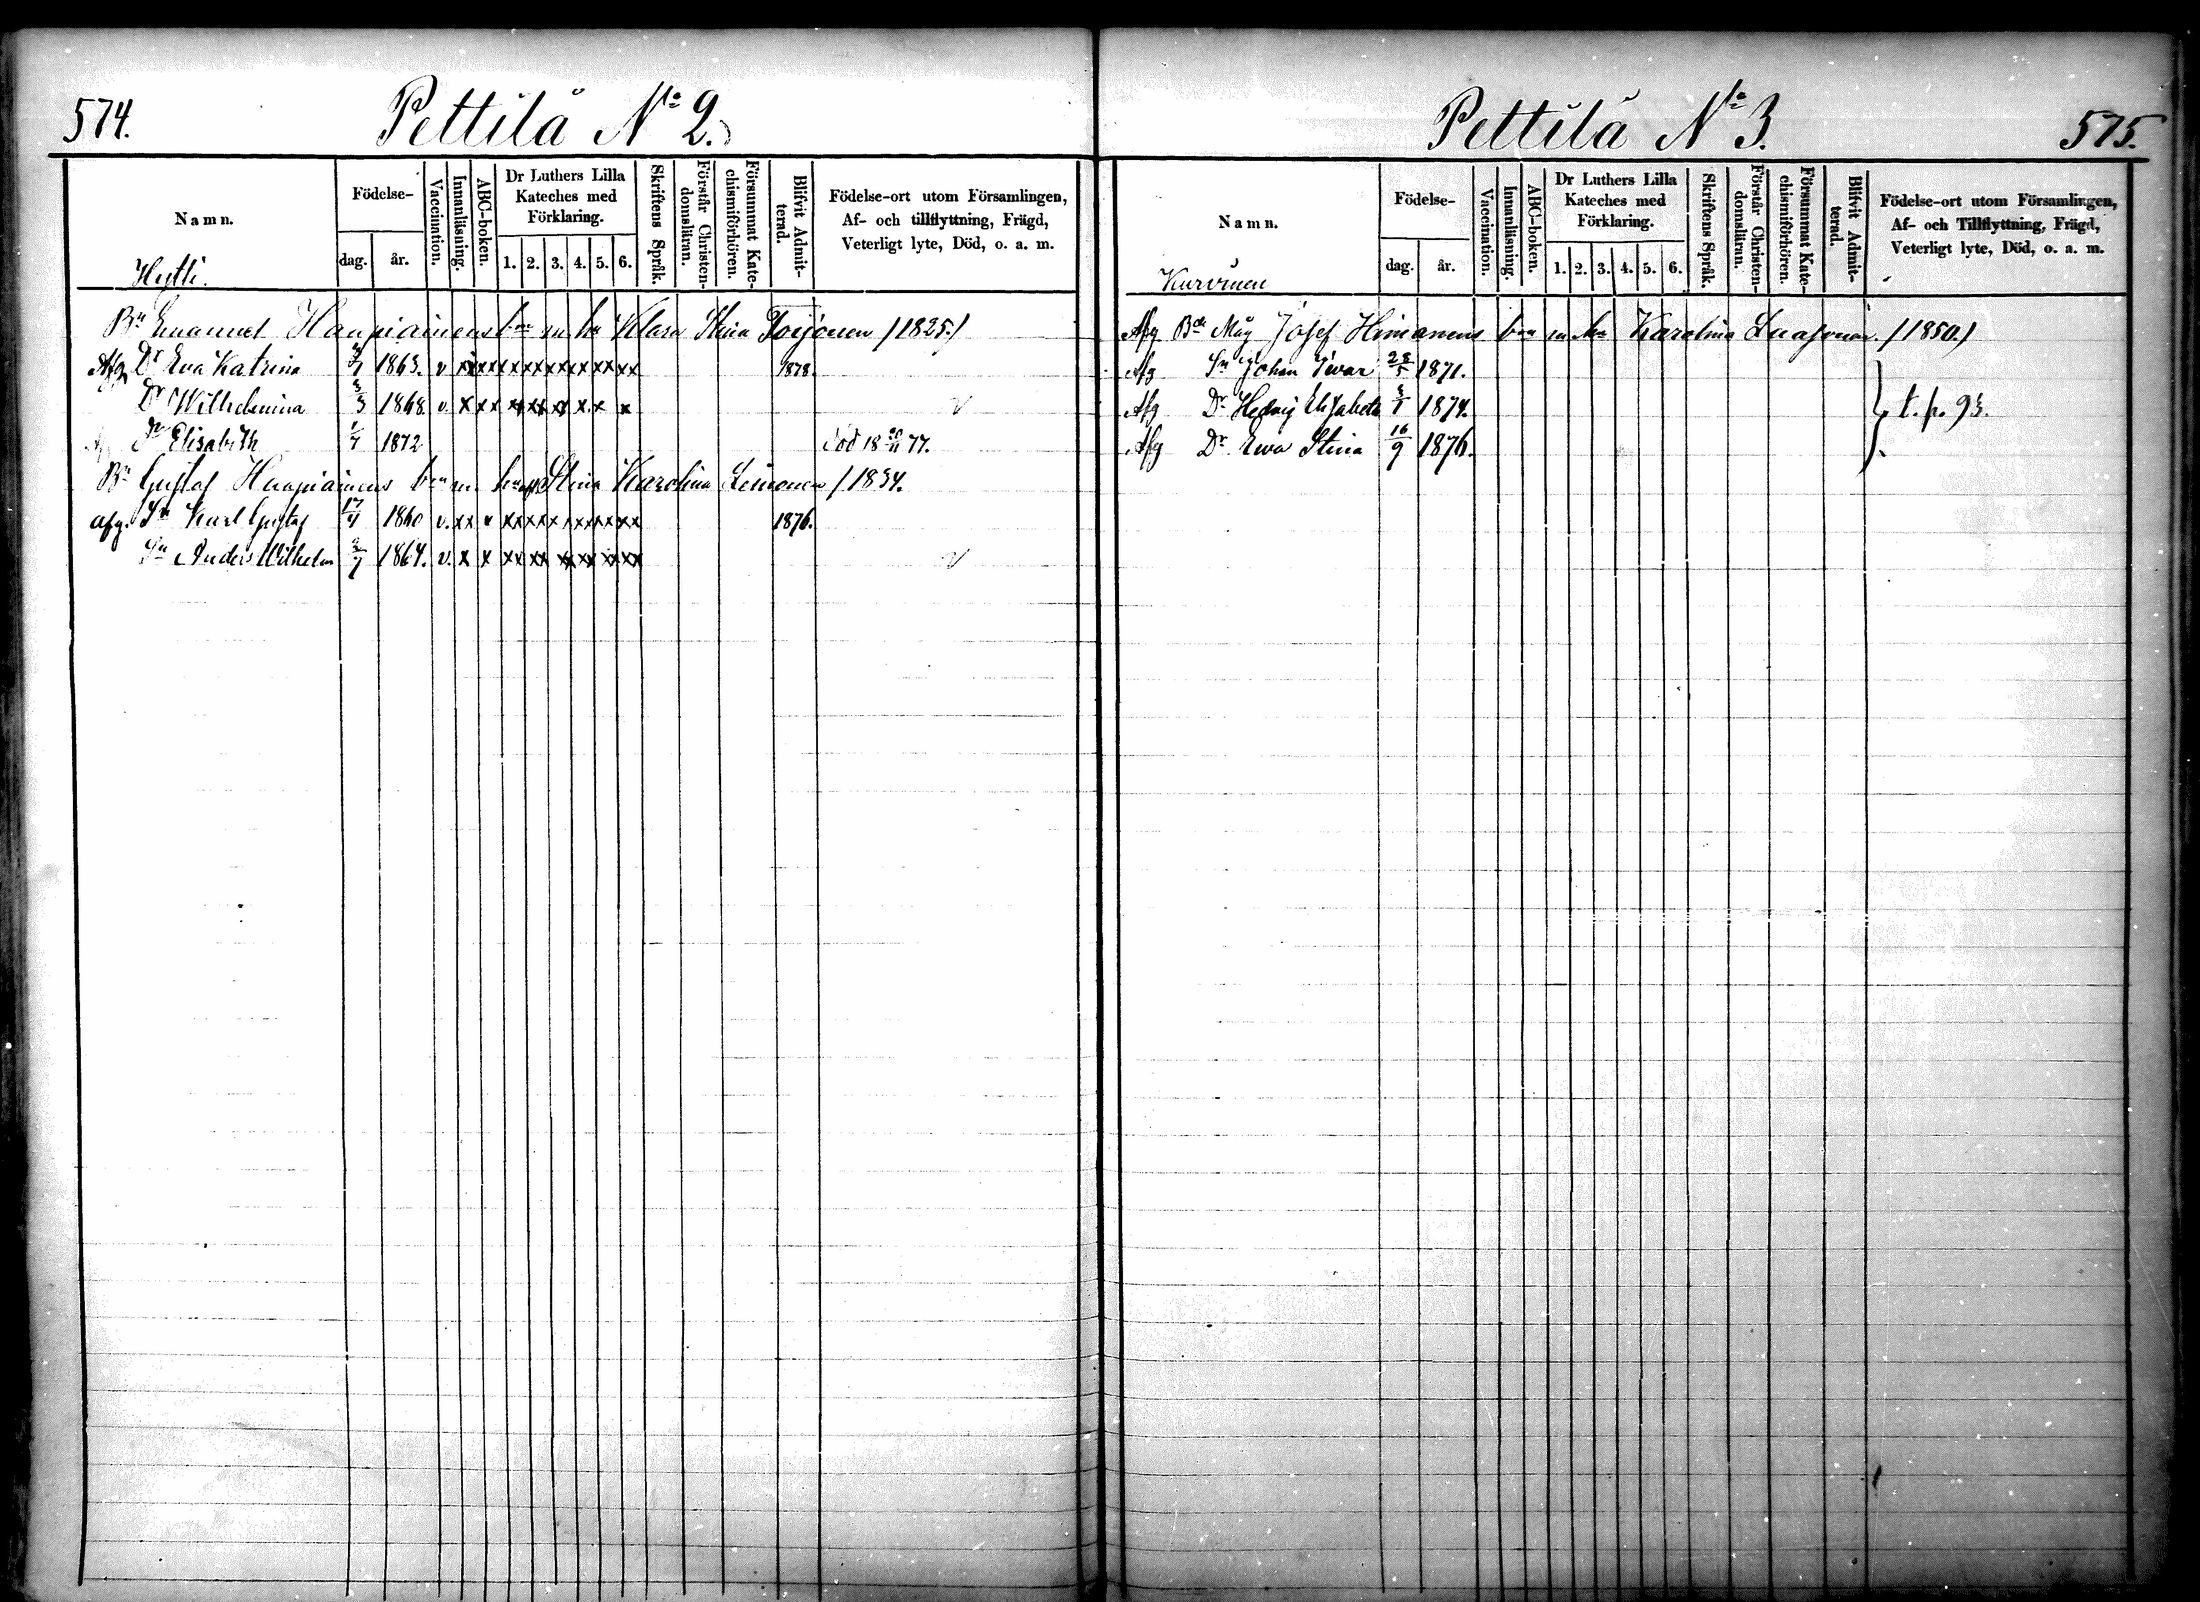 574.
Pettilä No 2.
Namn.
Födelse-
dag.
år.
Vaccination.
Innanläsning.
ABC-boken.
Dr Luthers Lilla
Kateches med
Förklaring.
1. 2. 3. 4. 5. 6.
Skriftens Språk.
Förstår Christen-
domsläran.
Försummat Kate-
chismiförhören.
Blifvit Admit-
terad.
Födelse-ort utom Församlingen,
Af- och tillflyttning, Frägd,
Veterligt lyte, Död, o. a. m.
Hytti.
Bn Emanuel Haapiainens bn m. hu Klara Stina Toijonen /1825./
Afg Dr Eva Katrina 1863. v xx xx xx xx xx xx xx xx 1878.
Dr Wilhelmina 3/3 1868 v. x xx xx xx x x x x v
Dr Elisabeth 1/7 1872 Död 18 77.
Bn Gustaf Haapiainens bn m. hu Stina Karolina Leinonen /1834.
afg. Sn Karl Gustaf 17/4 1860 v. xx x xx xx xx xx xx xx 1876.
Sn Anders Wilhelm 1864. v. x x xx xx xx xx xx xx v
Pettilä No 3.
575.
Namn.
Födelse-
dag.
år.
Vaccination.
Innanläsning.
ABC-boken.
Dr Luthers Lilla
Kateches med
Förklaring.
1. 2. 3. 4. 5. 6.
Skriftens Språk.
Förstår Christen-
domsläran.
Försummat Kate-
chismiförhören.
Blifvit Admit-
terad.
Födelse-ort utom Församlingen,
Af- och Tillflyttning, Frägd,
Veterligt lyte, Död, o. a. m.
Kurvinen
Afg Måg Josef Himanens bn m hu Karolina /1850./
Afg Sn Johan Ivar 28/5 1871.
Afg Dr Hedvig Elisabeth 1874. t. p. 93.
Afg Dr Eva Stina 16/9 1876.